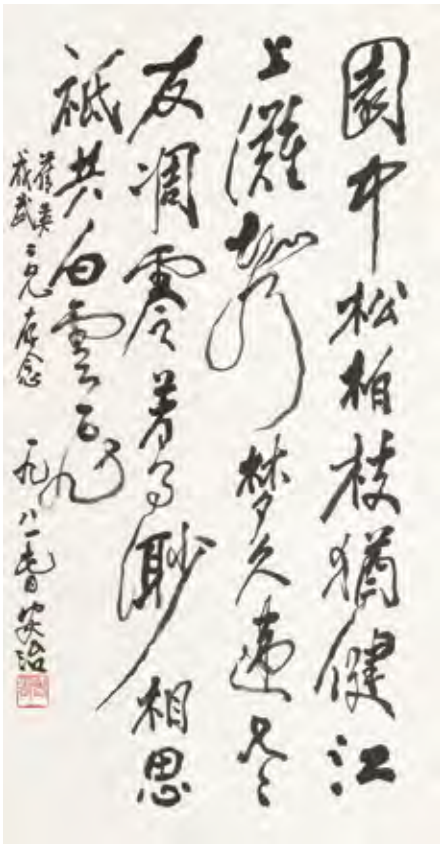 園中松柏枝猶健江
上灘聲夢久違
友凋零渺相思
祗共白雲飛
英
成武二兄存念 一九八一春 安治